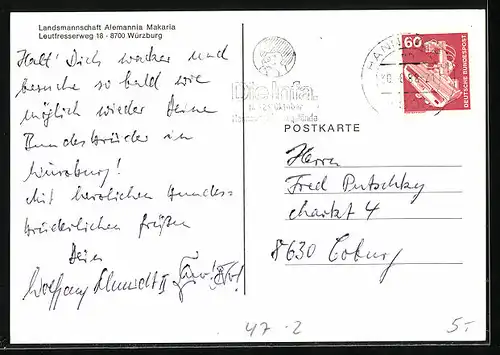 Landsmannschaft Alemannia Makaria
Leutfresserweg 18 - 8700 Würzburg
Halt' Dich wacker und
besuche so bald wie
möglich wieder Deine
Bundesbrüder in
Würzburg!
Mit herzlichen bundes-
brüderlichen Grüßen
Dein
Wolfgang Schmidt II
HANN
Die Infa
POSTKARTE
60
DEUTSCHE BUNDESPOST
Herrn
Fred Putschky
Markt 4
8630 Coburg
47-2
5.-